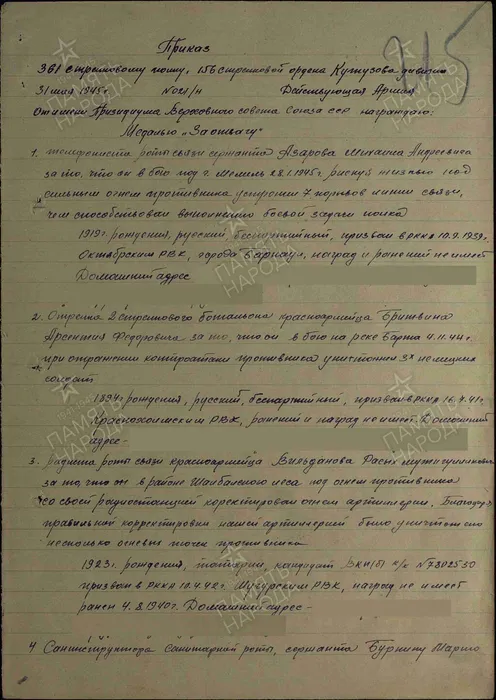 215
Приказ
361 стрелковому полку, 156 стрелковой ордена Кутузова дивизии
31 мая 1945г. №021/н Действующая Армия
От имени Президиума Верховного совета Союза сср награждаю:
Медалью "За отвагу"
1. телефониста роты связи сержанта Азарова Михаила Андреевича
за то, что он в бою под г. Мемель 28.1.1945г. рискуя жизнью под
сильным огнем противника устранил 7 порывов линии связи,
чем способствовал выполнению боевой задачи полка
1919г. рождения, русский, беспартийный, призван в РККА 10.9.1939г.
Октябрьским РВК, города Барнаул, наград и ранений не имеет
Домашний адрес
2. Стрелка 2 стрелкового батальона красноармейца Бритвина
Арсентия Федоровича за то, что он в бою на реке 4.11.44г.
при отражении контратаки противника уничтожил 3х немецких
солдат
1894г рождения, русский, беспартийный, призван в РККА 16.4.41г.
Краснохолмским РВК, ранений и наград не имеет. Домашний
адрес -
3. радиста роты связи красноармейца Вильданова
за то, что он в районе леса под огнем противника
со своей радиостанцией коректировал огнем артилерии. Благодаря
правильной корректировки нашей артилерией было уничтожено
несколько огневых точек противника
1923г. рождения, татарин, кандидат ВКП/б/ к/к №7802530
призван в РККА 10.4.42г. РВК, наград не имеет
ранен Домашний адрес -
4 Санинструктора санитарной роты, сержанта Буркину Марию
ПАМЯТЬ
НАРОДА